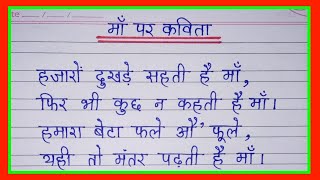 माँ पर कविता
हजारों दुखड़े सहती है माँ,
फिर भी कुछ न कहती है माँ।
हमारा बेटा फले औ' फूले,
यही तो मंतर पढ़ती है माँ।